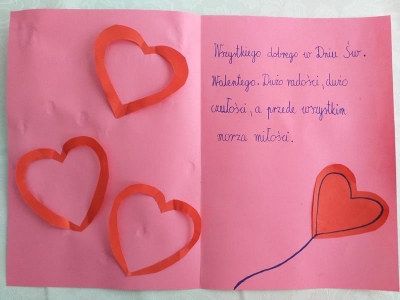 Wszystkiego dobrego w Dniu Św.
Walentego. Dużo radości, dużo
czułości, a przede wszystkim
morza miłości.